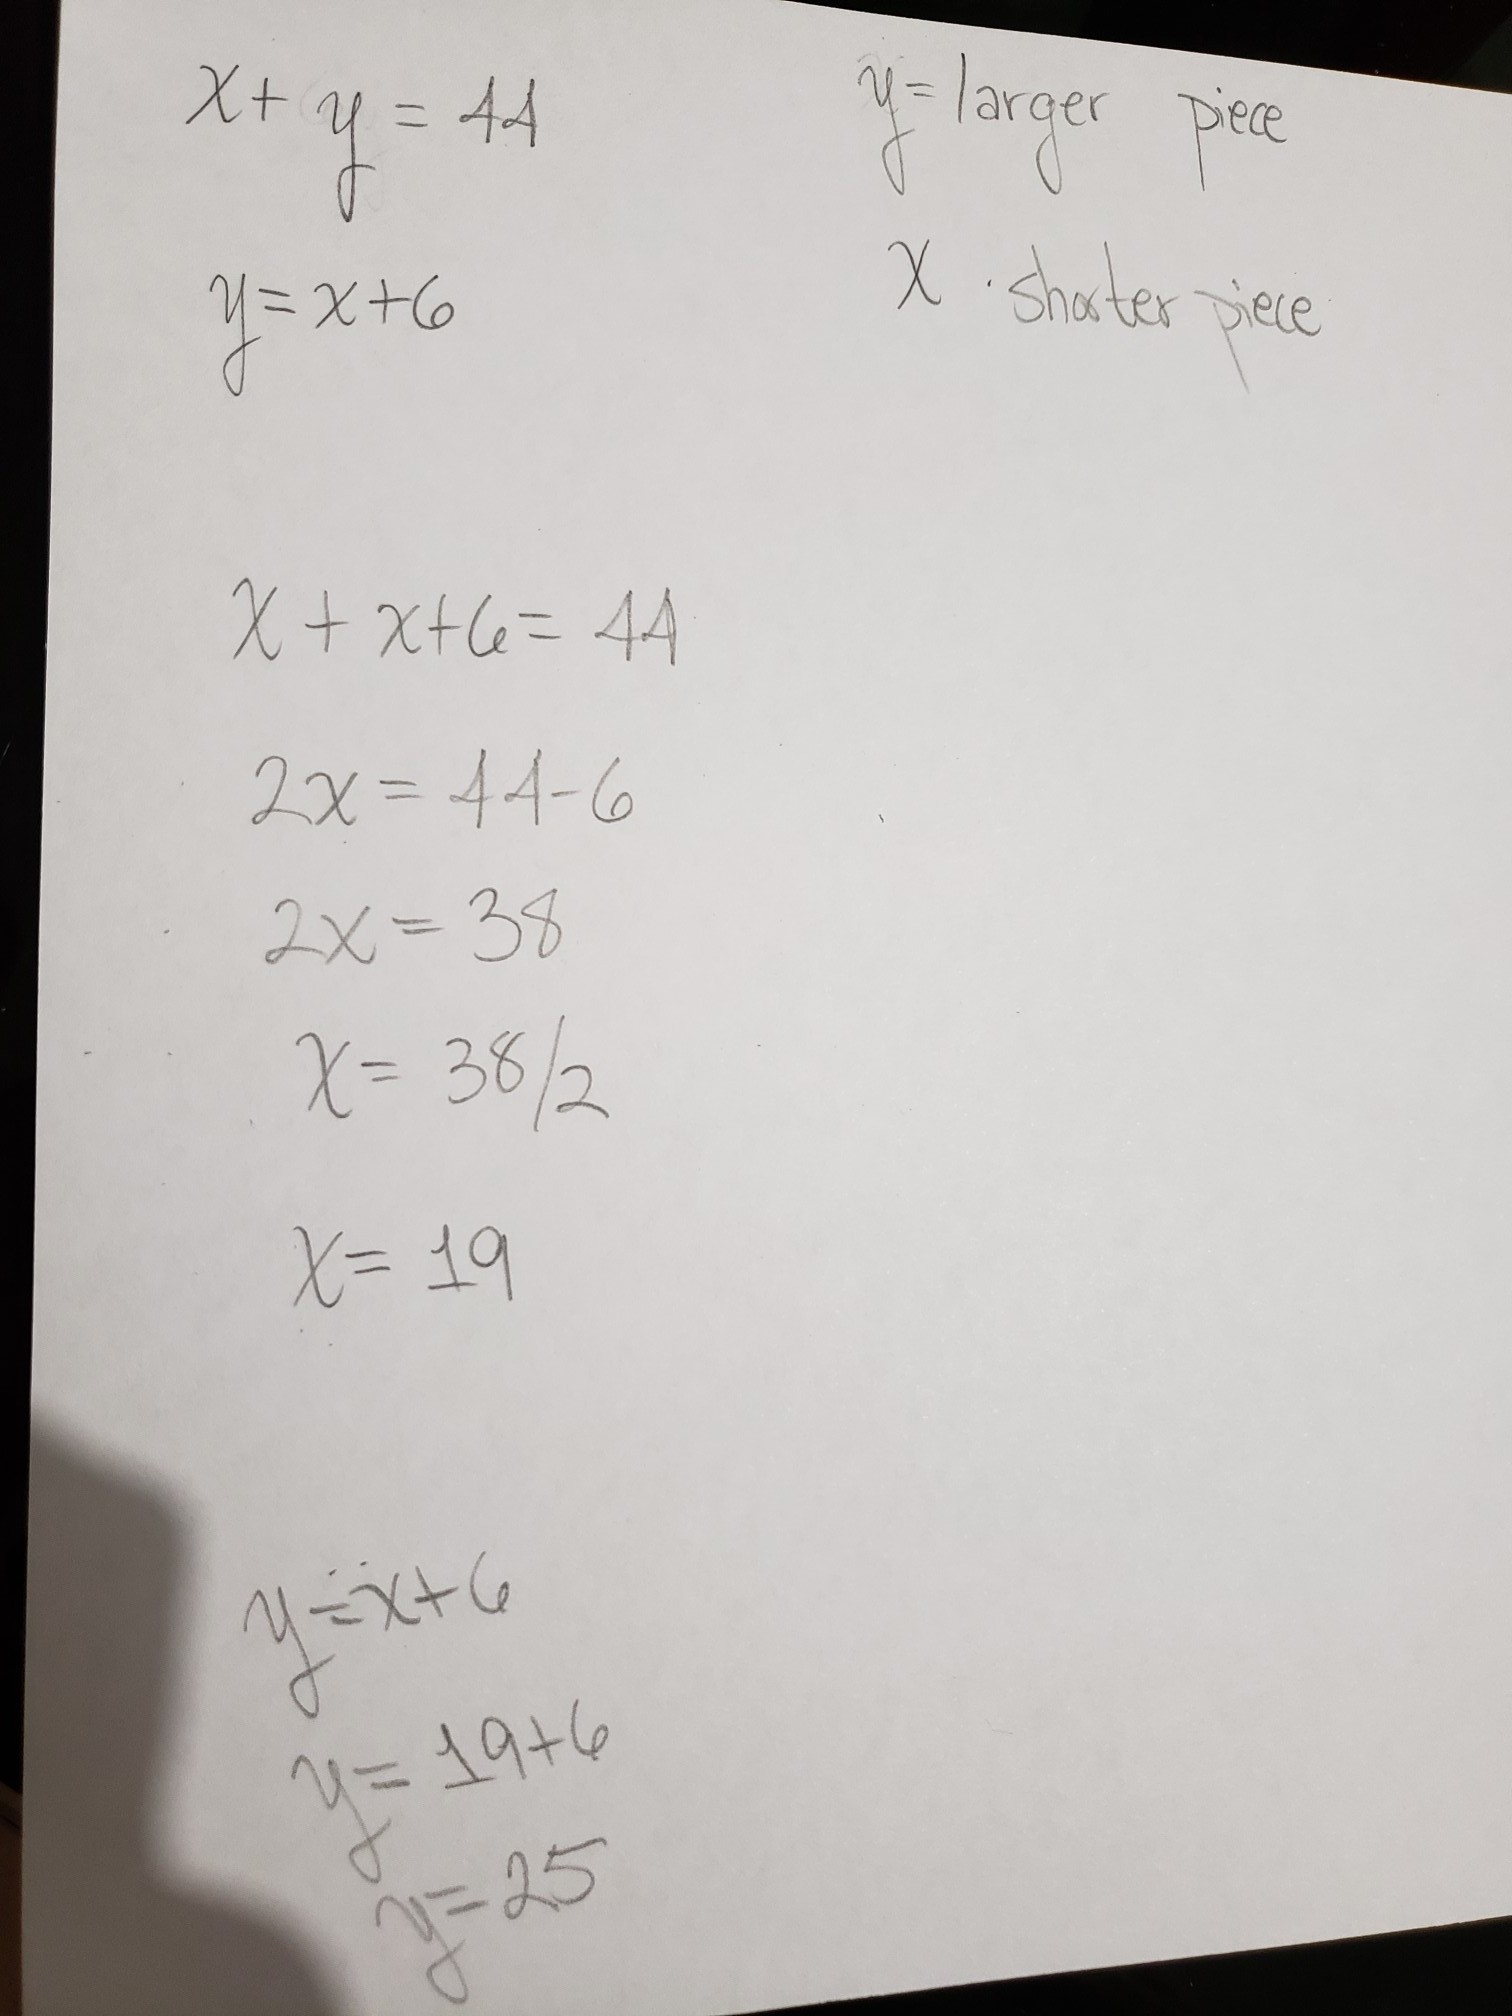 x + y = 44
y = larger piece
y = x+6
x · shorter piece
x + x+6 = 44
2x = 44-6
2x = 38
x = 38/2
x = 19
y = x+6
y = 19+6
y = 25